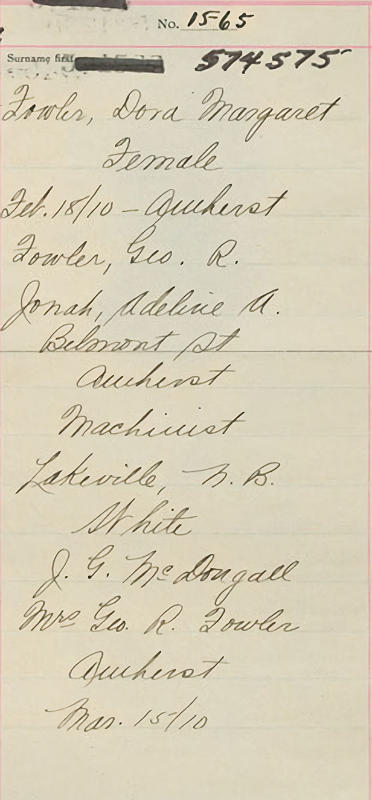 No. 1565
Surname first 574575
Fowler, Dora Margaret
Female
Feb. 18/10 - Amherst
Fowler, Geo. R.
Jonah, Adeline A.
Belmont St
Amherst
Machinist
Lakeville, N. B.
White
J. G. McDougall
Mrs Geo. R. Fowler
Amherst
Mar. 15/10